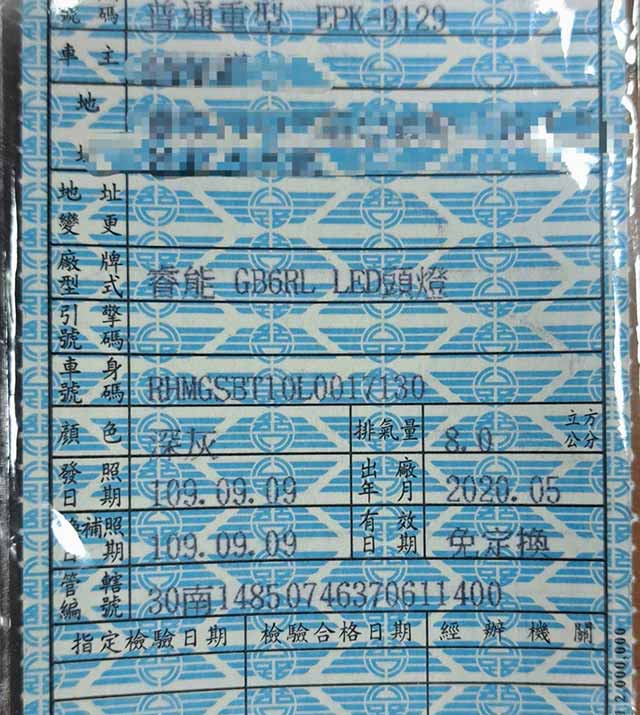 號碼 普通重型 EPK-9129
車主
地
地址變更
廠牌型式 睿能 GB6RL LED頭燈
引擎號碼
車身號碼 RHMGSBT10L0017130
顏色 深灰 排氣量 8.0 立方公分
發照日期 109.09.09 出廠年月 2020.05
補照日期 109.09.09 有效日期 免定換
管轄編號 30南14850746370611400
指定檢驗日期 檢驗合格日期 經辦機關
12,000,000